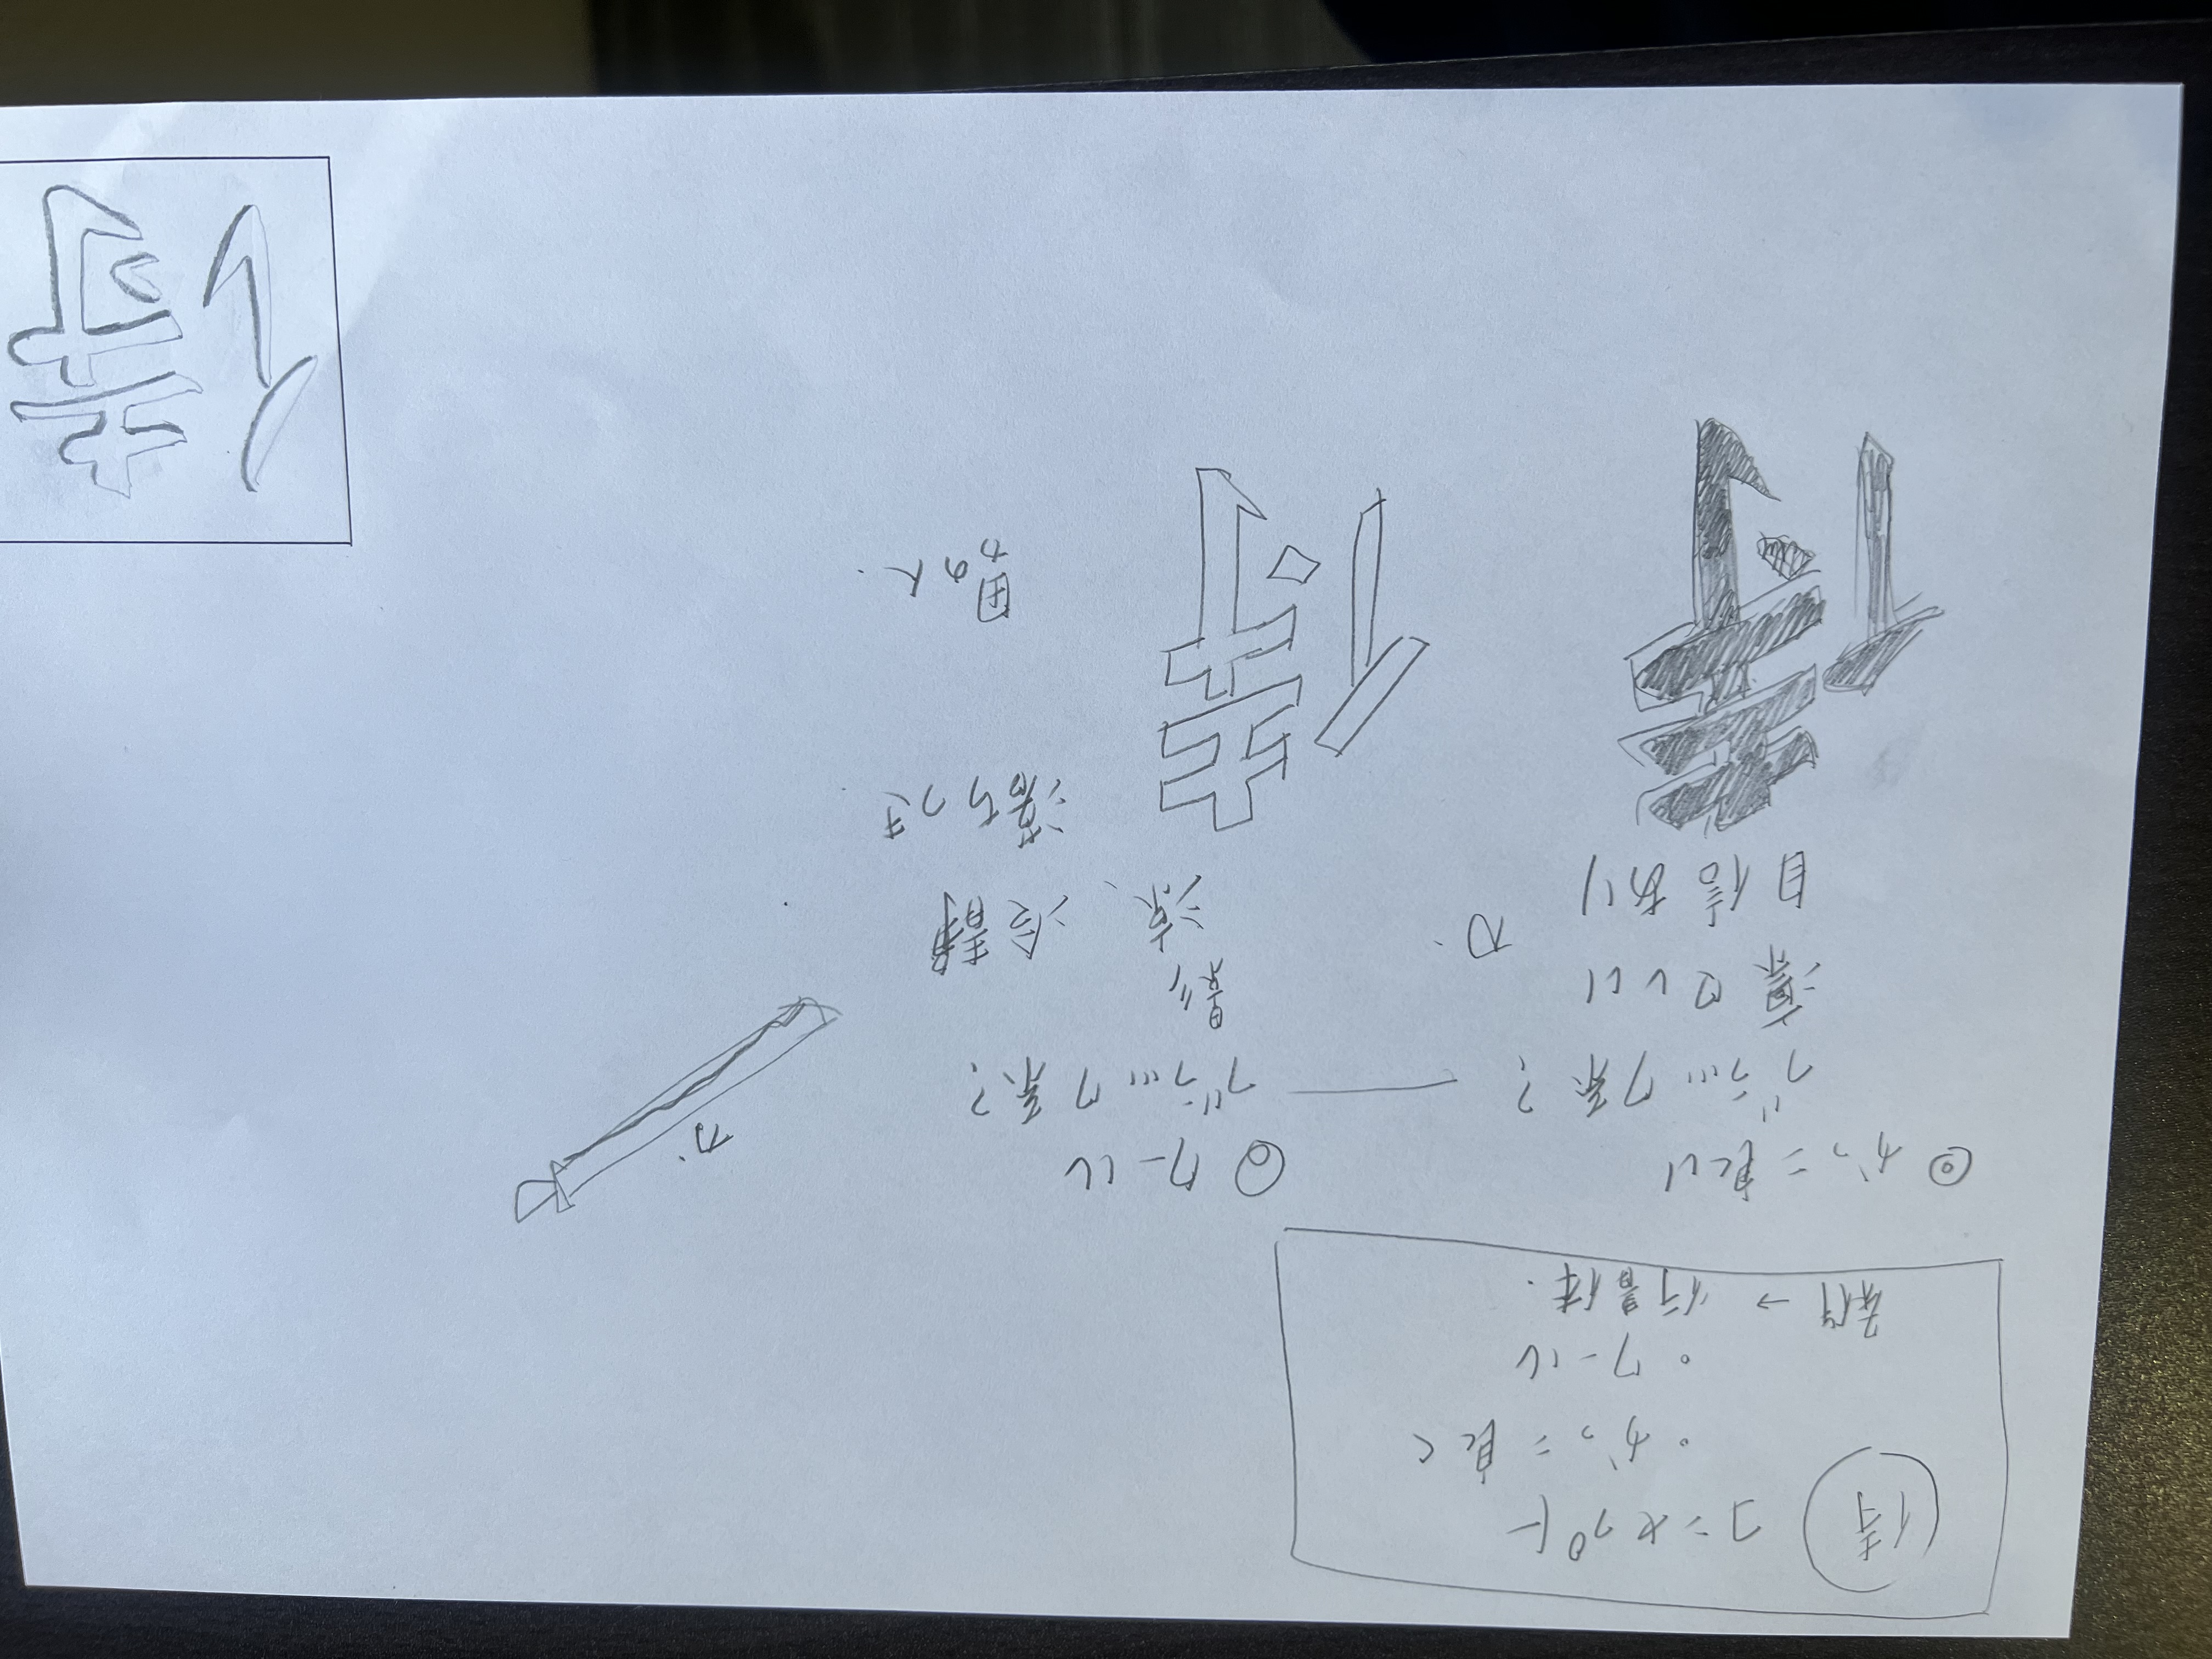 侍 コンセプト
・かっこ良く
・クール
条件→行書体.
◎かっこ良い
ブラック系?
凛としい
自信あり
刀
侍
◎クール
ブラック系?
影
涼、冷静
落ちつき
侍
刀
侍